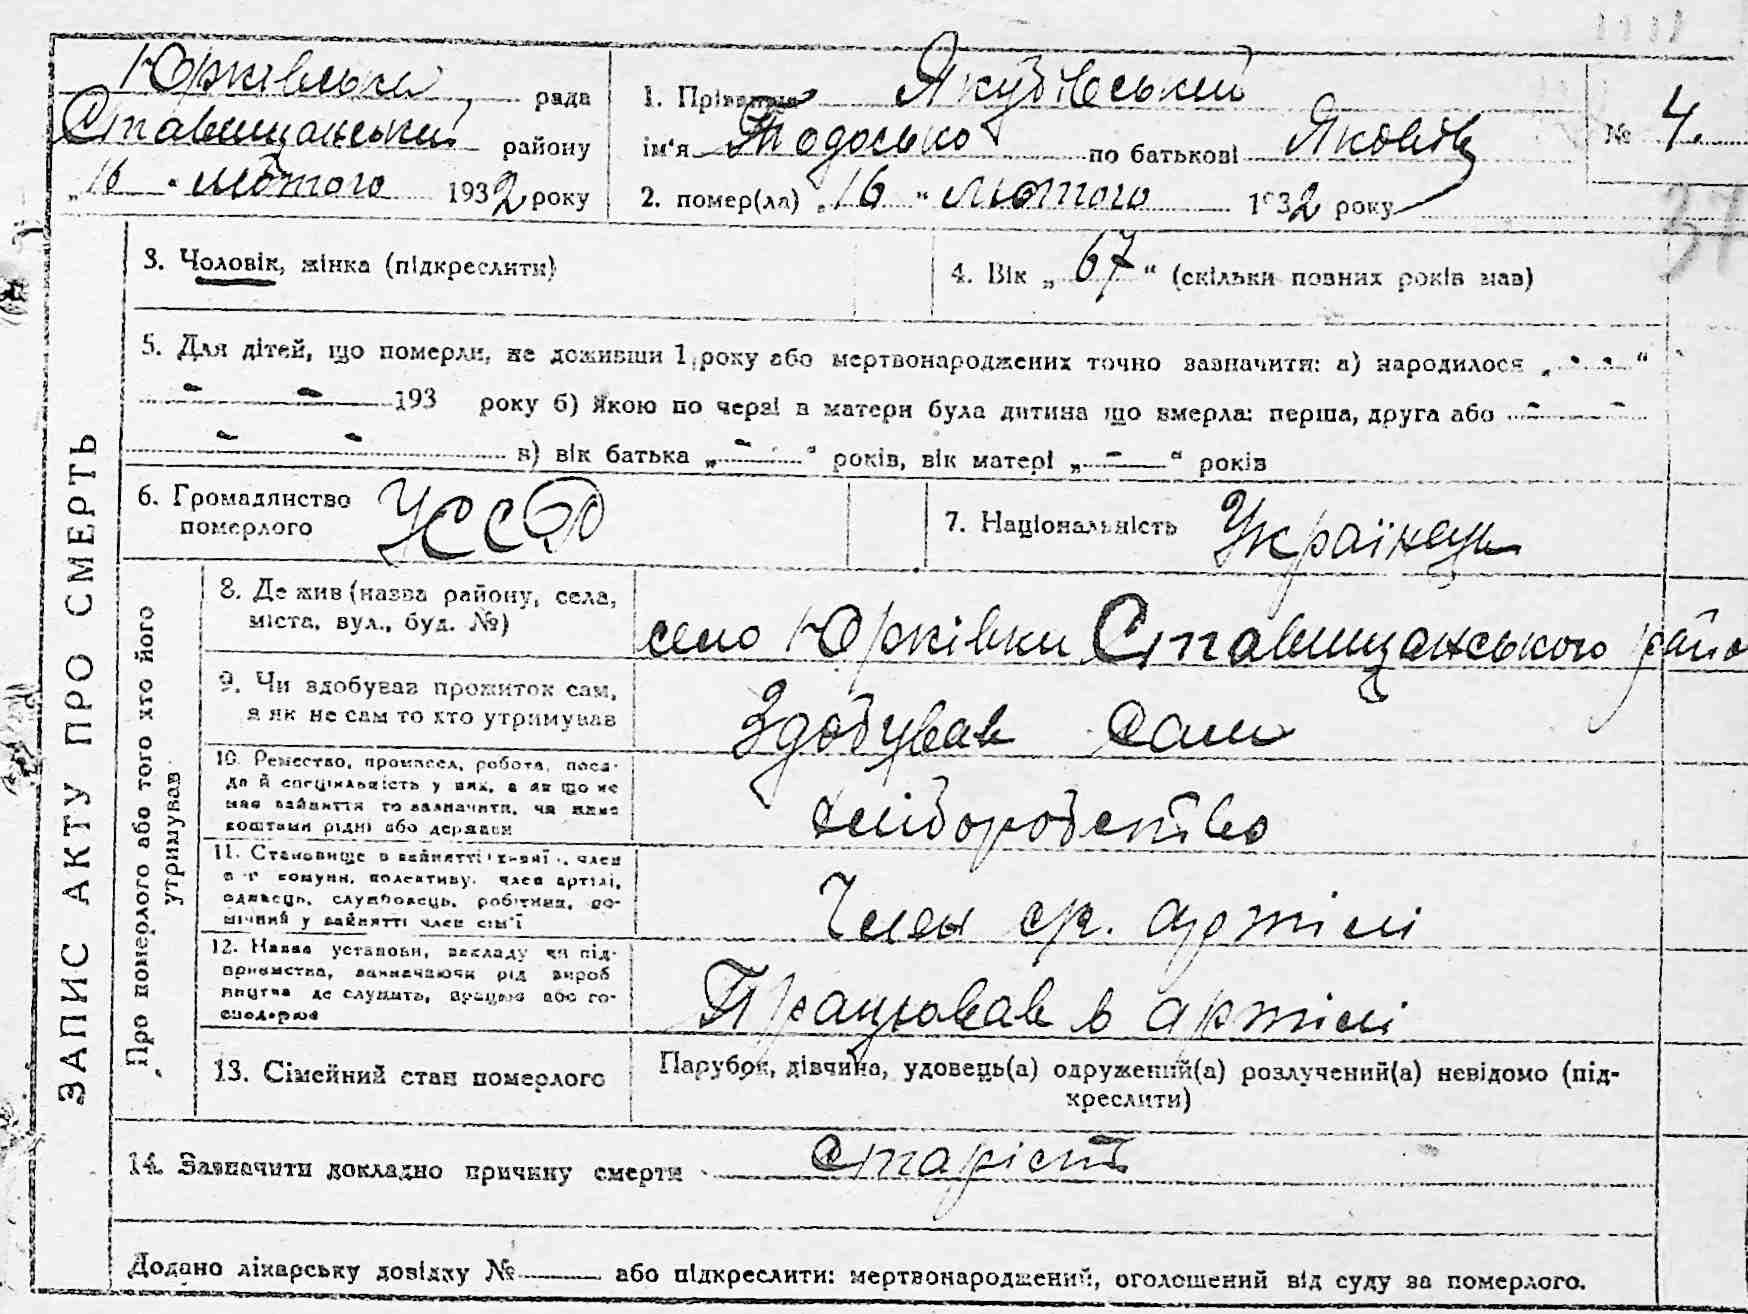 Юрківська рада
Ставищанський району
„16 “ лютого 1932 року
1. Прізвище Якубівський
ім'я Тодосько по батькові Яковів
2. помер(ла) „16 “ лютого 1932 року
№ 4.
37
ЗАПИС АКТУ ПРО СМЕРТЬ
3. Чоловік, жінка (підкреслити)
4. Вік „ 67 “ (скільки повних років мав)
5. Для дітей, що померли, не доживши 1 року або мертвонароджених точно зазначити: а) народилося „ - - “
- - 193 року б) якою по черзі в матери була дитина що вмерла: перша, друга або - -
- - в) вік батька „ - “ років, вік матері „ - “ років
6. Громадянство
померлого УССР
7. Національність Українець
Про померлого або того хто його
утримував
8. Де жив (назва району, села,
міста, вул., буд. №)
село Юрківки Ставищанського райо
9. Чи здобував прожиток сам,
а як не сам то хто утримував
Здобував сам
10. Ремество, промисел, робота, поса-
да й спеціяльність у них, а як що не
мав зайняття то зазначити, чи живе
коштами рідні або держави
хліборобство
11. Становище в зайнятті член
комуни, колективу, член артілі,
одинець, службовець, робітник, по-
мічний у зайнятті член сім'ї
Член с.г. артілі
12. Назва установи, закладу чи під-
приємства, зазначаючи рід вироб
ництва де служить, працює або го-
сподарює
Працював в артілі
13. Сімейний стан померлого
Парубок, дівчина, удовець(а) одружений(а) розлучений(а) невідомо (під-
креслити)
14. Зазначити докладно причину смерти старіст
Додано лікарську довідку № або підкреслити: мертвонароджений, оголошений від суду за померлого.